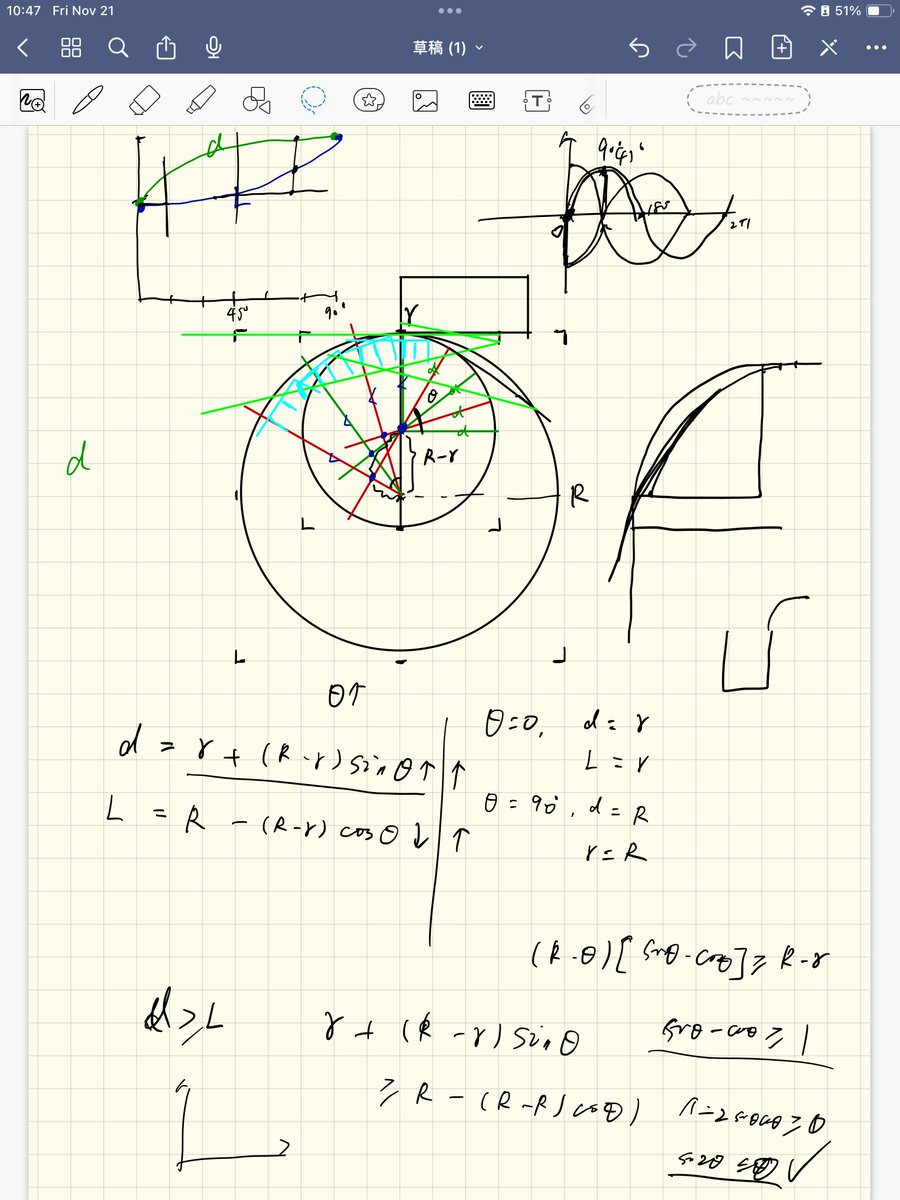 10:47 Fri Nov 21
51%
草稿 (1)
abc
d
L
45°
90°
90°
0
180
2π
r
θ
d
d
d
d
L
L
L
L
R-r
R
d
θ↑
d = r + (R-r) sinθ↑ ↑
L = R - (R-r) cosθ↓ ↑
θ=0, d=r
L=r
θ=90°, d=R
r=R
(R-θ)[sinθ-cosθ]≥R-r
d≥L
r + (R-r) sinθ
≥ R - (R-R) cosθ)
sinθ-cosθ≥1